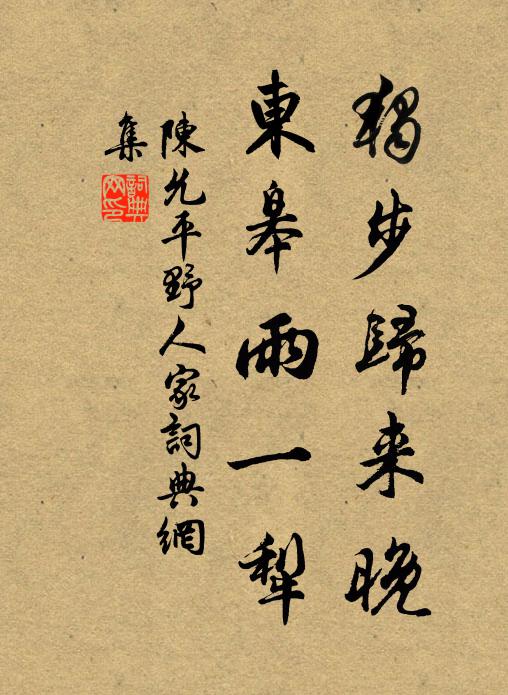 獨步歸来晚
東皋雨一犁
陳允平野人家詞典網
集
詞典
网印